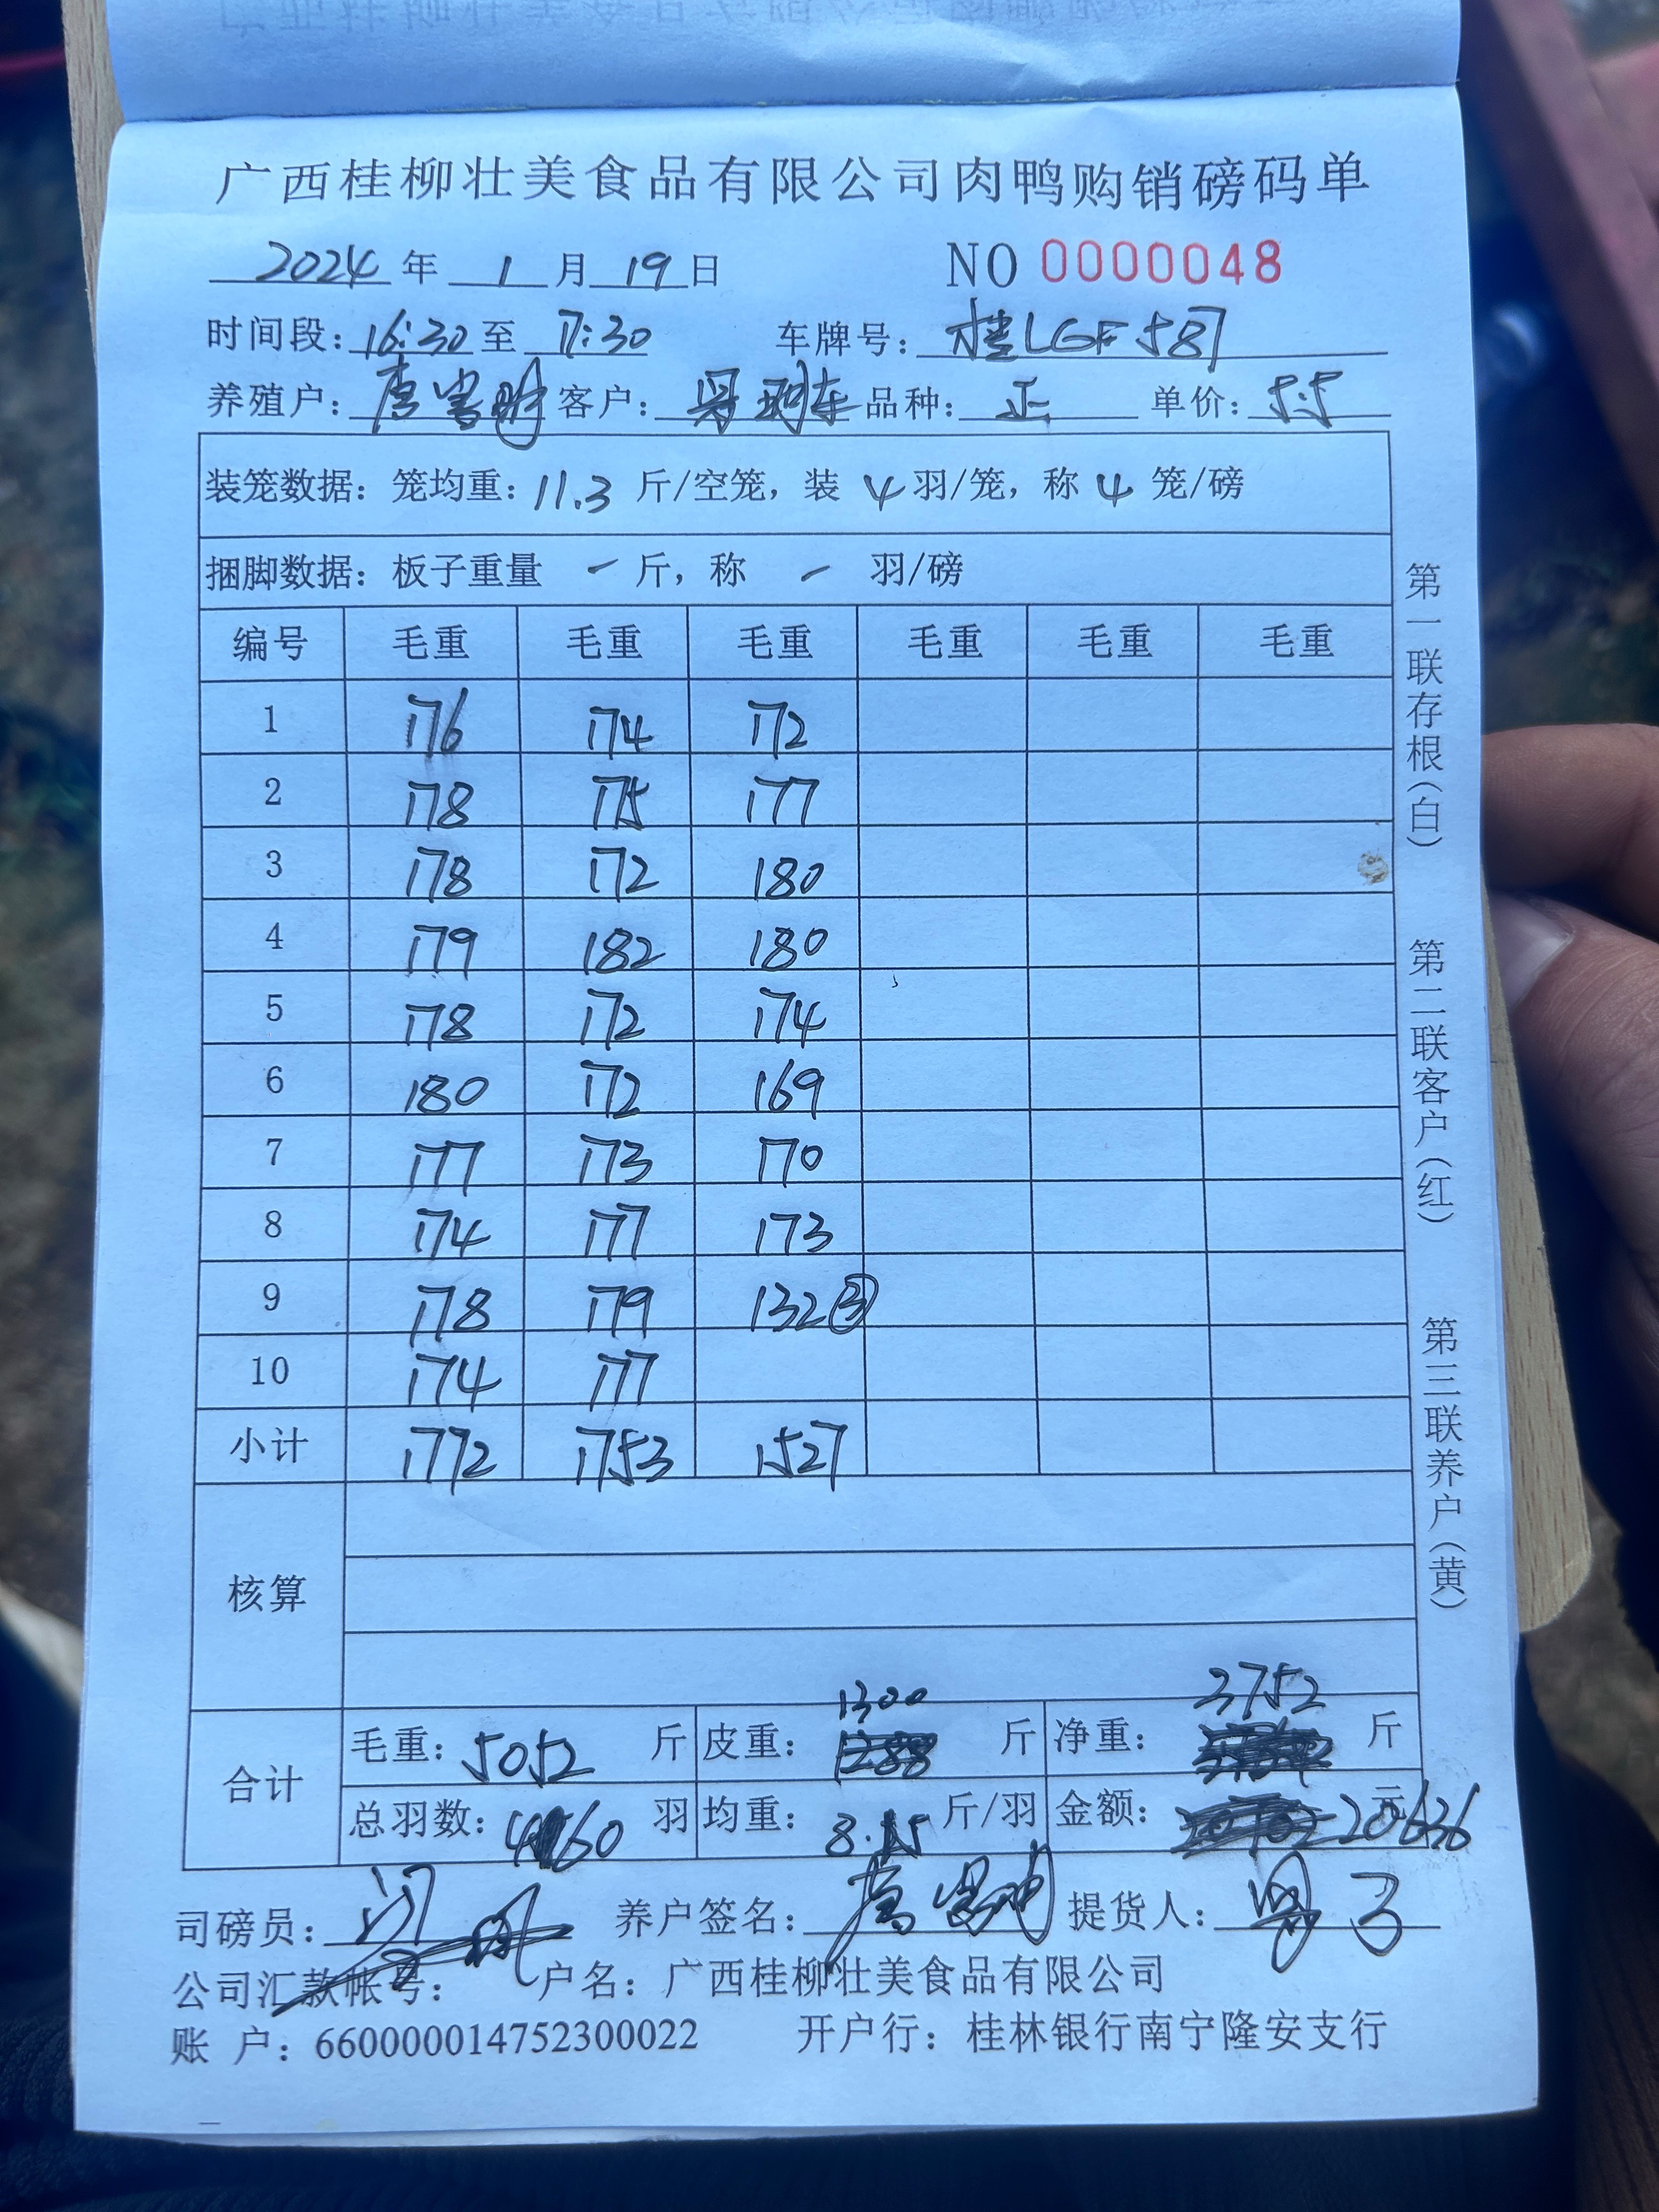 广西桂柳壮美食品有限公司肉鸭购销磅码单
2024 年 1 月 19 日 NO 0000048
时间段: 16:30 至 17:30 车牌号: 桂LGF587
养殖户: 客户: 品种: 正 单价: 5.5
装笼数据: 笼均重: 11.3 斤/空笼, 装 4 羽/笼, 称 4 笼/磅
捆脚数据: 板子重量 - 斤, 称 - 羽/磅
编号 毛重 毛重 毛重 毛重 毛重 毛重
1 176 174 172
2 178 175 177
3 178 172 180
4 179 182 180
5 178 172 174
6 180 172 169
7 177 173 170
8 174 177 173
9 178 179 132 ③
10 174 177
小计 1772 1753 1527
核算
合计
毛重: 5052 斤 皮重: 1300 斤 净重: 3752 斤
总羽数: 460 羽 均重: 8.15 斤/羽 金额: 20636 元
司磅员: 养户签名: 提货人:
公司汇款帐号: 户名: 广西桂柳壮美食品有限公司
账 户: 660000014752300022 开户行: 桂林银行南宁隆安支行
第一联存根(白)
第二联客户(红)
第三联养户(黄)